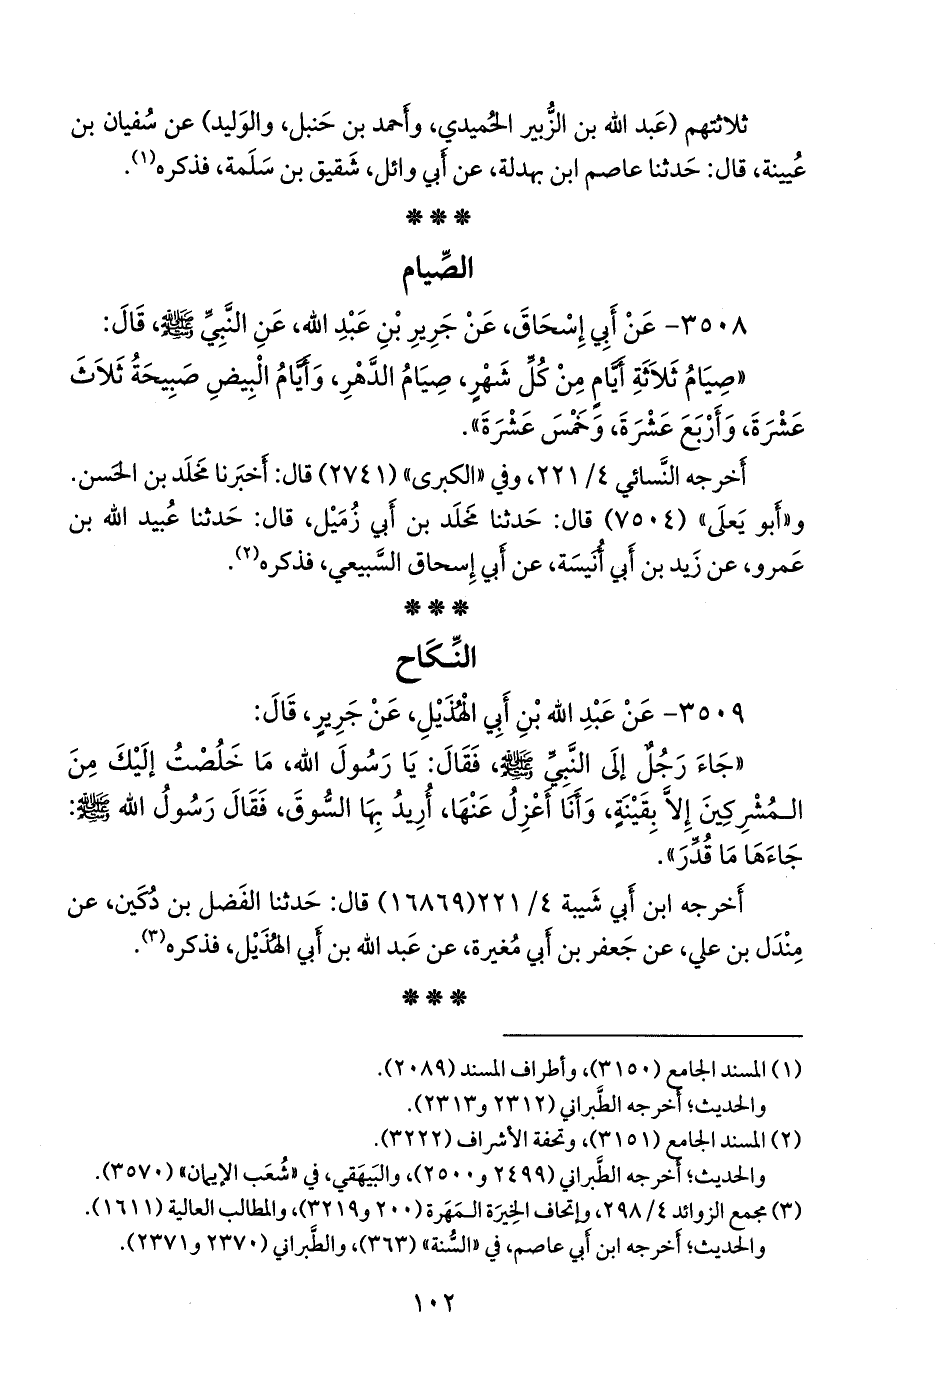 ثلاثتهم (عَبد الله بن الزُّبير الحُميدي، وأَحمد بن حَنبل، والوَليد) عن سُفيان بن
عُيينة، قال: حَدثنا عاصم ابن بهدلة، عن أَبي وائل، شَقيق بن سَلَمة، فذكره(١).
* * *
الصِّيام
٣٥٠٨- عَنْ أَبِي إِسْحَاقَ، عَنْ جَرِيرِ بْنِ عَبْدِ الله، عَنِ النَّبِيِّ ﷺ، قَالَ:
«صِيَامُ ثَلاَثَةِ أَيَّامٍ مِنْ كُلِّ شَهْرٍ، صِيَامُ الدَّهْرِ، وَأَيَّامُ الْبِيضِ صَبِيحَةُ ثَلاَثَ
عَشْرَةَ، وَأَرْبَعَ عَشْرَةَ، وَخَمْسَ عَشْرَةَ».
أَخرجه النَّسائي ٤/ ٢٢١، وفي «الكبرى» (٢٧٤١) قال: أَخبَرنا مَخلَد بن الحَسن.
و«أَبو يَعلَى» (٧٥٠٤) قال: حَدثنا مَخلَد بن أَبي زُمَيْل، قال: حَدثنا عُبيد الله بن
عَمرو، عن زَيد بن أَبي أُنَيسَة، عن أَبي إِسحاق السَّبيعي، فذكره(٢).
* * *
النِّكَاح
٣٥٠٩- عَنْ عَبْدِ الله بْنِ أَبِي الْهُذَيْلِ، عَنْ جَرِيرٍ، قَالَ:
«جَاءَ رَجُلٌ إِلَى النَّبِيِّ ﷺ، فَقَالَ: يَا رَسُولَ الله، مَا خَلُصْتُ إِلَيْكَ مِنَ
الـمُشْرِكِينَ إِلاَّ بِقَيْنَةٍ، وَأَنَا أَعْزِلُ عَنْهَا، أُرِيدُ بِهَا السُّوقَ، فَقَالَ رَسُولُ الله ﷺ:
جَاءَهَا مَا قُدِّرَ».
أَخرجه ابن أَبي شَيبة ٤/ ٢٢١(١٦٨٦٩) قال: حَدثنا الفَضل بن دُكَين، عن
مِنْدَل بن علي، عن جَعفر بن أَبي مُغيرة، عن عَبد الله بن أَبي الهُذَيْل، فذكره(٣).
* * *
(١) المسند الجامع (٣١٥٠)، وأطراف المسند (٢٠٨٩).
والحديث؛ أَخرجه الطَّبراني (٢٣١٢ و٢٣١٣).
(٢) المسند الجامع (٣١٥١)، وتحفة الأشراف (٣٢٢٢).
والحديث؛ أَخرجه الطَّبراني (٢٤٩٩ و٢٥٠٠)، والبَيهَقي، في «شُعَب الإيمان» (٣٥٧٠).
(٣) مجمع الزوائد ٤/ ٢٩٨، وإتحاف الخِيرَة الـمَهَرة (٢٠٠ و٣٢١٩)، والمطالب العالية (١٦١١).
والحديث؛ أَخرجه ابن أبي عاصم، في «السُّنة» (٣٦٣)، والطَّبراني (٢٣٧٠ و٢٣٧١).
١٠٢